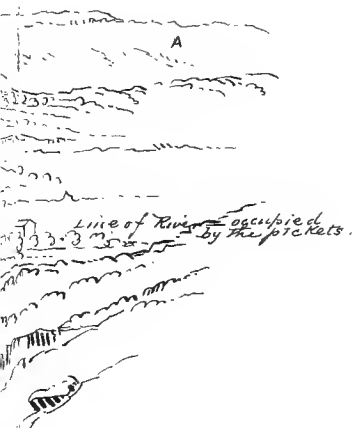 A
Line of River = occupied
by the pickets.